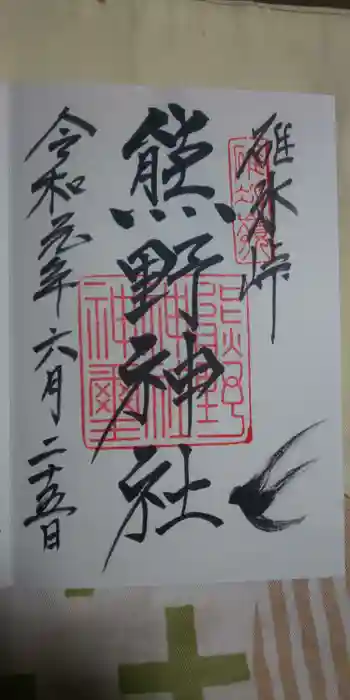 碓氷峠
熊野神社
令和元年六月二十五日
熊野
神社
神璽